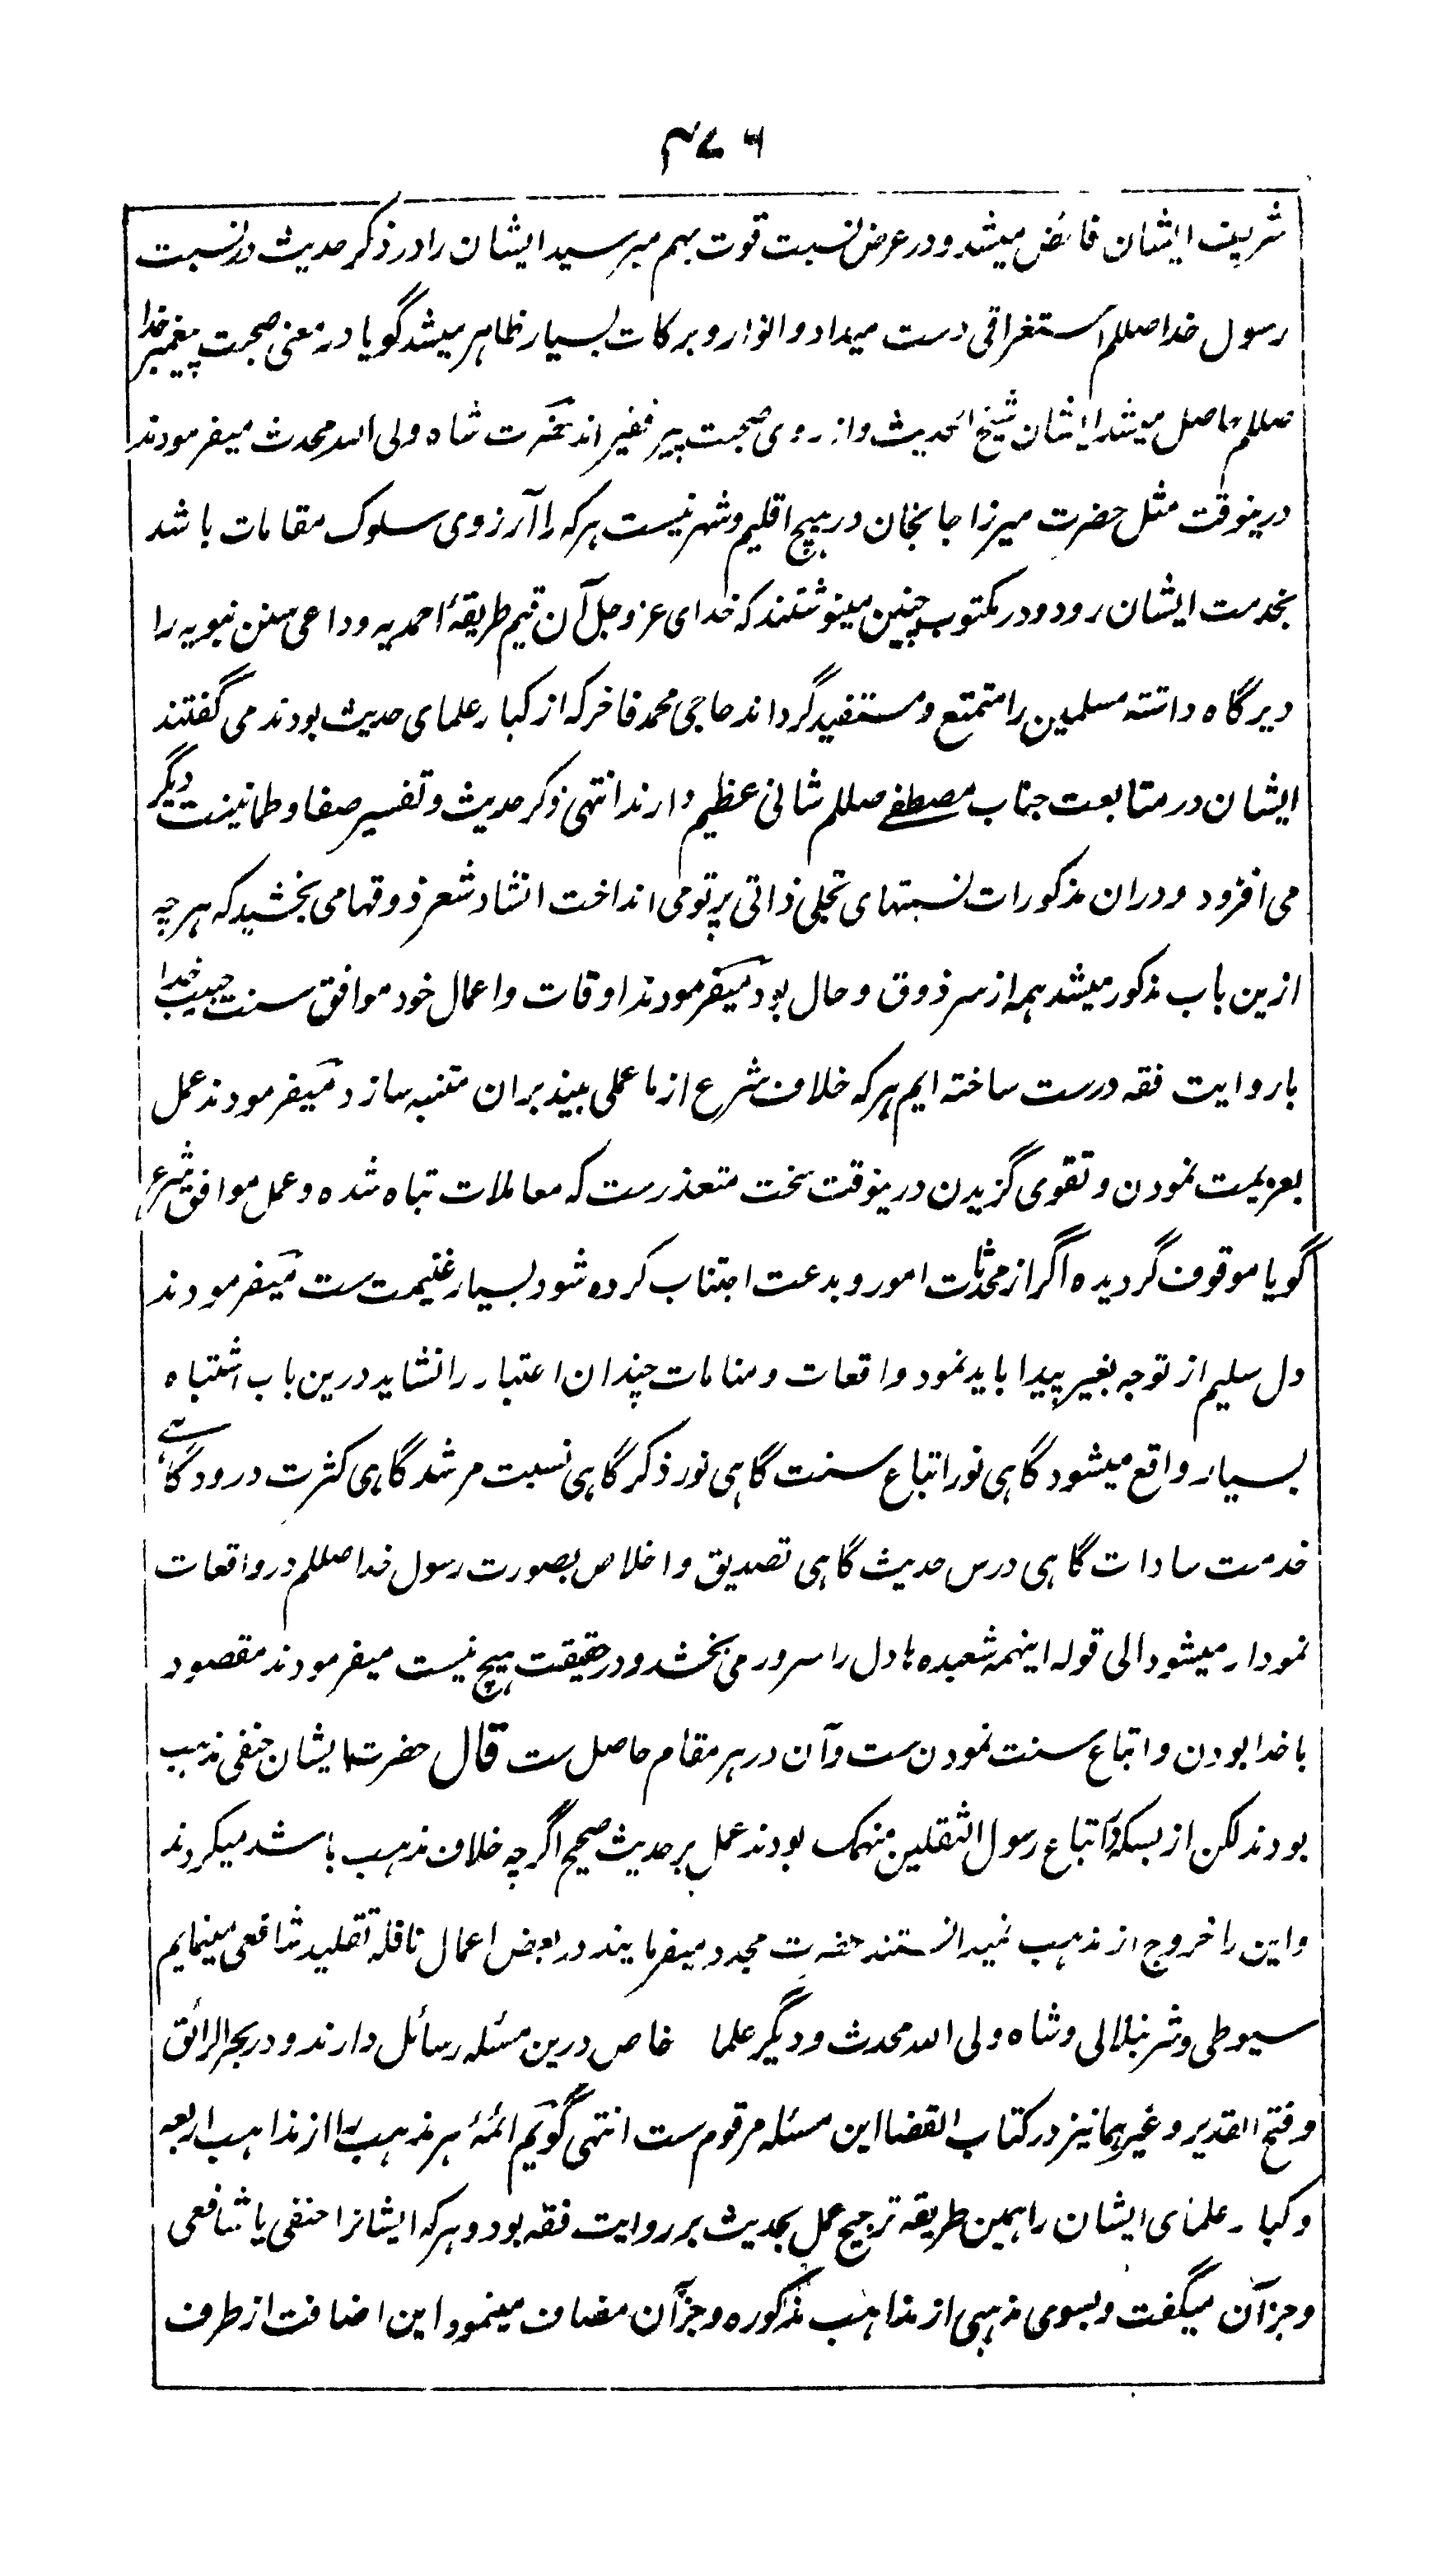 ۴۷۶
شریف ایشان فائض میشد و در عرض نسبت قوت بهم میرسید ایشان را در ذکر حدیث در نسبت
رسول خدا صللم استغراقی دست میداد و انوار و برکات بسیار ظاهر میشد گویا در معنی صحبت پیغمبر خدا
صللم حاصل میشد ایشان شیخ الحدیث و از روی صحبت پیر فقیر اند حضرت شاه ولی الله محدث میفرمودند
درینوقت مثل حضرت میرزا جانجان در هیچ اقلیم و شهر نیست هر که را آرزوی سلوک مقامات باشد
بخدمت ایشان رود و در مکتوب چنین مینوشتند که خدای عز و جل آن قیم طریقۀ احمدیه و داعی سنن نبویه را
دیرگاه داشته مسلمین را متمتع و مستفید گرداند حاجی محمد فاخر که از کبار علمای حدیث بودند می گفتند
ایشان در متابعت جناب مصطفے صللم شانی عظیم دارند انتهی ذکر حدیث و تفسیر صفا و طمانینت دیگر
می افزود و دران مذکورات نسبتهای تجلی ذاتی پرتو می انداخت انشاد شعر ذوقها می بخشید که هر چه
ازین باب مذکور میشد همه از سر ذوق و حال بود میفرمودند اوقات و اعمال خود موافق سنت حبیب خدا
با روایت فقه درست ساخته ایم هر که خلاف شرع از ما عملی بیند بران متنبه سازد میفرمودند عمل
بعزیمت نمودن و تقوی گزیدن درینوقت سخت متعذرست که معاملات تباه شده و عمل موافق شرع
گویا موقوف گردیده اگر از محدثات امور و بدعت اجتناب کرده شود بسیار غنیمت ست میفرمودند
دل سلیم از توجه بغیر پیدا باید نمود واقعات و منامات چندان اعتبار را نشاید درین باب اشتباه
بسیار واقع میشود گاهی نور اتباع سنت گاهی نور ذکر گاهی نسبت مرشد گاهی کثرت درود گاهے
خدمت سادات گاهی درس حدیث گاهی تصدیق و اخلاص بصورت رسول خدا صللم در واقعات
نمودار میشود الی قوله اینهمه شعبده ها دل را سرور می بخشد و در حقیقت هیچ نیست میفرمودند مقصود
با خدا بودن و اتباع سنت نمودن ست و آن در هر مقام حاصل ست قال حضرت ایشان حنفی مذهب
بودند لکن از بسکه در اتباع رسول الثقلین منهمک بودند عمل بر حدیث صحیح اگر چه خلاف مذهب باشد میکردند
و این را خروج از مذهب نمیدانستند حضرت مجدد میفرمایند در بعض اعمال نافله تقلید شافعی مینمایم
سیوطی و شرنبلالی و شاه ولی الله محدث و دیگر علما خاص درین مسئله رسائل دارند و در بحر الرائق
و فتح القدیر و غیرهما نیز در کتاب القضا این مسئله مرقوم ست انتهی گویم ائمۀ هر مذهب را از مذاهب اربعه
و کبار علمای ایشان را همین طریقه ترجیح عمل بحدیث بر روایت فقه بود و هر که ایشانرا حنفی یا شافعی
و جز آن میگفت و بسوی مذهبی از مذاهب مذکوره و جز آن مضاف مینمود این اضافت از طرف